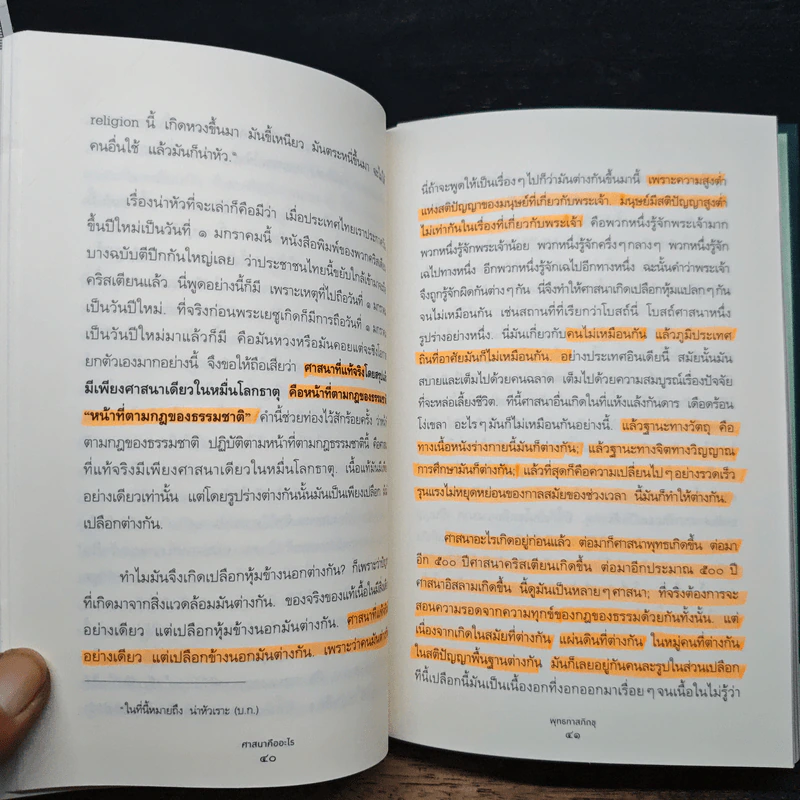 religion นี้ เกิดหวงขึ้นมา มันขี้เหนียว มันตระหนี่ขึ้นมา
คนอื่นใช้ แล้วมันก็น่าหัว.*
เรื่องน่าหัวที่จะเล่าก็คือมีว่า เมื่อประเทศไทยเรา
ขึ้นปีใหม่เป็นวันที่ ๑ มกราคมนี้ หนังสือพิมพ์ของพวก
บางฉบับตีปีกกันใหญ่เลย ว่าประชาชนไทยนี้ขยับใกล้เข้ามา
คริสเตียนแล้ว นี่พูดอย่างนี้ก็มี เพราะเหตุที่ไปถือวันที่ ๑
เป็นวันปีใหม่. ที่จริงก่อนพระเยซูเกิดก็มีการถือวันที่ ๑
เป็นวันปีใหม่มาแล้วก็มี คือมันหวงหรือมันคอยแต่จะ
ยกตัวเองมากอย่างนี้ จึงขอให้ถือเสียว่า ศาสนาที่แท้จริง
มีเพียงศาสนาเดียวในหมื่นโลกธาตุ คือหน้าที่ตามกฎของ
“หน้าที่ตามกฎของธรรมชาติ” คำนี้ช่วยท่องไว้สักร้อยครั้ง
ตามกฎของธรรมชาติ ปฏิบัติตามหน้าที่ตามกฎธรรมชาตินี้
ที่แท้จริงมีเพียงศาสนาเดียวในหมื่นโลกธาตุ. เนื้อแท้
อย่างเดียวเท่านั้น แต่โดยรูปร่างต่างกันนั้นมันเป็นเพียงเปลือก
เปลือกต่างกัน.
ทำไมมันจึงเกิดเปลือกหุ้มข้างนอกต่างกัน? ก็เพราะว่า
ที่เกิดมาจากสิ่งแวดล้อมมันต่างกัน. ของจริงของแท้เนื้อใน
อย่างเดียว แต่เปลือกหุ้มข้างนอกมันต่างกัน.
อย่างเดียว แต่เปลือกข้างนอกมันต่างกัน. เพราะว่าคน
*ในที่นี้หมายถึง น่าหัวเราะ (บ.ท.)
ศาสนาคืออะไร
๔๐
นี่ถ้าจะพูดให้เป็นเรื่องๆ ไปก็ว่ามันต่างกันขึ้นมานี้ เพราะความสูงต่ำ
แห่งสติปัญญาของมนุษย์ที่เกี่ยวกับพระเจ้า. มนุษย์มีสติปัญญาสูง
ไม่เท่ากันในเรื่องที่เกี่ยวกับพระเจ้า คือพวกหนึ่งรู้จักพระเจ้ามาก
พวกหนึ่งรู้จักพระเจ้าน้อย พวกหนึ่งรู้จักครึ่งๆ กลางๆ พวกหนึ่งรู้จัก
เฉไปทางหนึ่ง อีกพวกหนึ่งรู้จักเฉไปอีกทางหนึ่ง ฉะนั้นคำว่าพระเจ้า
จึงถูกรู้จักผิดกันต่างๆ กัน นี่จึงทำให้ศาสนาเกิดเปลือกหุ้มแปลกๆ กัน
จนไม่เหมือนกัน เช่นสถานที่ที่เรียกว่าโบสถ์นี่ โบสถ์ศาสนาหนึ่ง
รูปร่างอย่างหนึ่ง. นี่มันเกี่ยวกับคนไม่เหมือนกัน แล้วภูมิประเทศ
ถิ่นที่อาศัยมันก็ไม่เหมือนกัน อย่างประเทศอินเดียนี้ สมัยนั้นมัน
สบายและเต็มไปด้วยคนฉลาด เต็มไปด้วยความสมบูรณ์เรื่องปัจจัย
ที่จะหล่อเลี้ยงชีวิต. ทีนี้ศาสนาอื่นเกิดในที่แห้งแล้งกันดาร เดือดร้อน
โง่เขลา อะไรๆ มันก็ไม่เหมือนกันอย่างนี้. แล้วฐานะทางวัตถุ คือ
ทางเนื้อหนังร่างกายนี้มันก็ต่างกัน; แล้วฐานะทางจิตทางวิญญาณ
การศึกษามันก็ต่างกัน; แล้วที่สุดก็คือความเปลี่ยนไปๆ อย่างรวดเร็ว
รุนแรงไม่หยุดหย่อนของกาลสมัยของช่วงเวลา นี้มันก็ทำให้ต่างกัน.
ศาสนาอะไรเกิดอยู่ก่อนแล้ว ต่อมาก็ศาสนาพุทธเกิดขึ้น ต่อมา
อีก ๕๐๐ ปีศาสนาคริสเตียนเกิดขึ้น ต่อมาอีกประมาณ ๕๐๐ ปี
ศาสนาอิสลามเกิดขึ้น นี้ดูมันเป็นหลายๆ ศาสนา; ที่จริงต้องการจะ
สอนความรอดจากความทุกข์ของกฎของธรรมด้วยกันทั้งนั้น. แต่
เนื่องจากเกิดในสมัยที่ต่างกัน แผ่นดินที่ต่างกัน ในหมู่คนที่ต่างกัน
ในสติปัญญาพื้นฐานต่างกัน มันก็เลยอยู่กันคนละรูปในส่วนเปลือก
ทีนี้เปลือกนี้มันเป็นเนื้องอกที่งอกออกมาเรื่อยๆ จนเนื้อในไม่รู้ว่า
พุทธทาสภิกขุ
๔๑